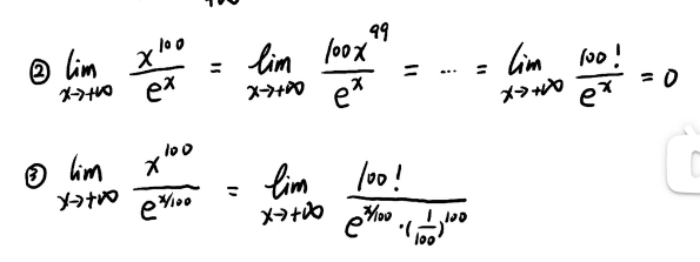 ② lim x→+∞ x^100/e^x = lim x→+∞ 100x^99/e^x = ... = lim x→+∞ 100!/e^x = 0
③ lim x→+∞ x^100/e^(x/100) = lim x→+∞ 100!/(e^(x/100)·(1/100)^100)